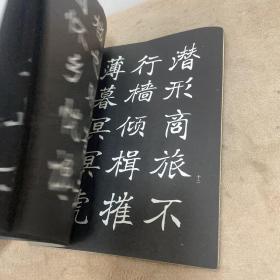 潜形商旅不
行樯倾楫摧
薄暮冥冥虎